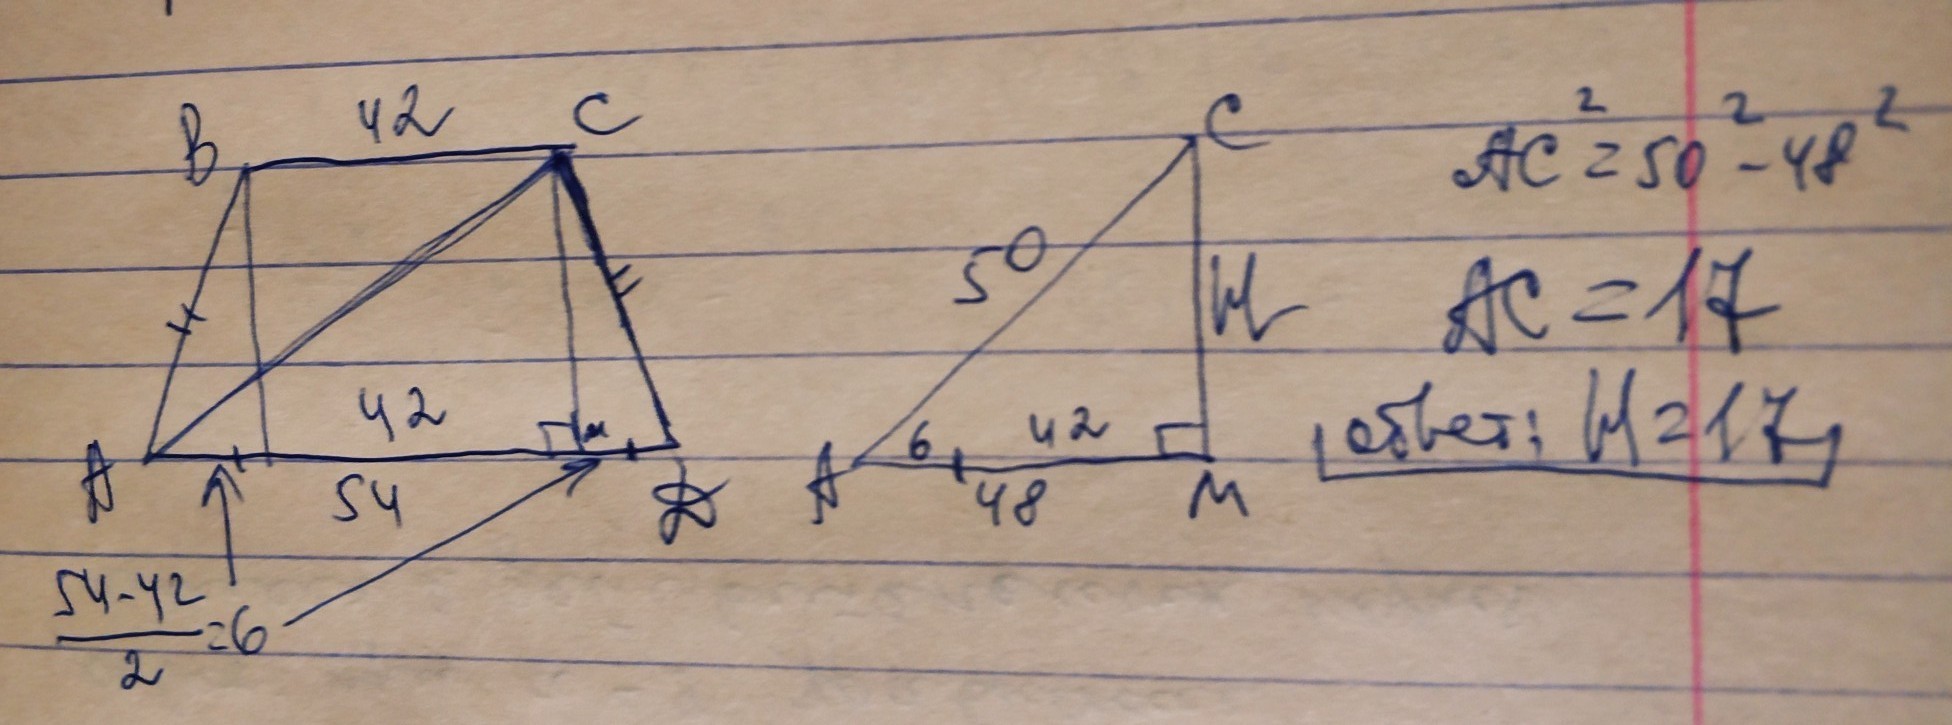 B 42 C
42
A 54 D
54-42
2
=6
C
50 H
6 42
A 48 M
AC² = 50² - 48²
AC = 17
ответ: H = 17